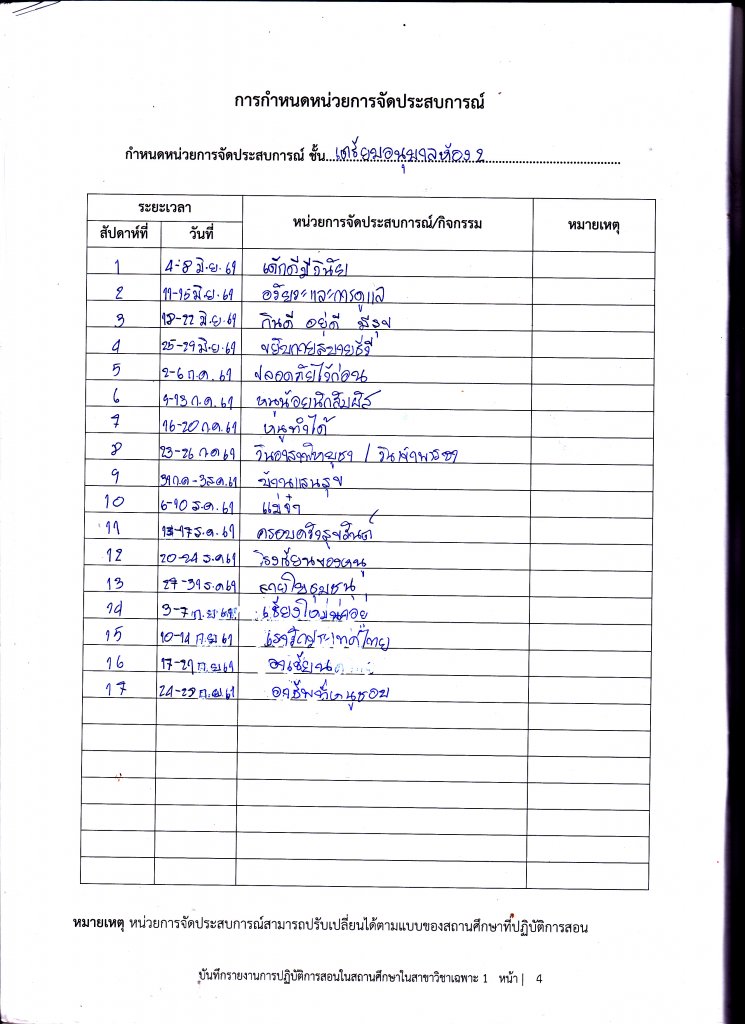 การกำหนดหน่วยการจัดประสบการณ์
กำหนดหน่วยการจัดประสบการณ์ ชั้น...เตรียมอนุบาลห้อง 2...
ระยะเวลา หน่วยการจัดประสบการณ์/กิจกรรม หมายเหตุ
สัปดาห์ที่ วันที่
1 4-8 มิ.ย. 61 เด็กดีมีวินัย
2 11-15 มิ.ย. 61 อวัยวะและการดูแล
3 18-22 มิ.ย. 61 กินดี อยู่ดี มีสุข
4 25-29 มิ.ย. 61 ขยับกายสบายชีวี
5 2-6 ก.ค. 61 ปลอดภัยไว้ก่อน
6 9-13 ก.ค. 61 หนูน้อยนักสัมผัส
7 16-20 ก.ค. 61 หนูทำได้
8 23-26 ก.ค. 61 วันอาสาฬหบูชา / วันเข้าพรรษา
9 31 ก.ค. - 3 ส.ค. 61 บ้านแสนสุข
10 6-10 ส.ค. 61 แม่จ๋า
11 13-17 ส.ค. 61 ครอบครัวสุขสันต์
12 20-24 ส.ค. 61 โรงเรียนของหนู
13 27-31 ส.ค. 61 ภายในชุมชน
14 3-7 ก.ย. 61 เชียงใหม่น่าอยู่
15 10-14 ก.ย. 61 เรารักประเทศไทย
16 17-21 ก.ย. 61 อาเซียน
17 24-28 ก.ย. 61 อาชีพที่หนูชอบ
หมายเหตุ หน่วยการจัดประสบการณ์สามารถปรับเปลี่ยนได้ตามแบบของสถานศึกษาที่ปฏิบัติการสอน
บันทึกรายงานการปฏิบัติการสอนในสถานศึกษาในสาขาวิชาเฉพาะ 1 หน้า | 4